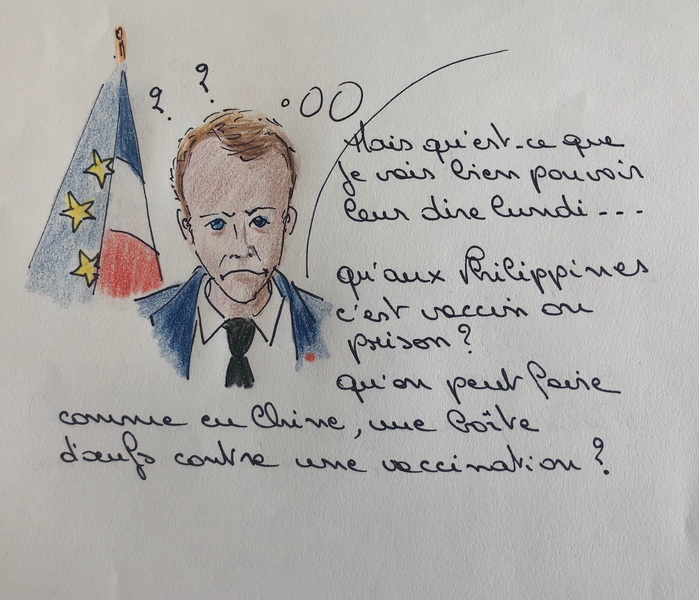 ? ?
Mais qu'est-ce que
je vais bien pouvoir
leur dire lundi ---
qu'aux Philippines
c'est vaccin ou
prison ?
qu'on peut faire
comme en Chine, une boîte
d'œufs contre une vaccination ?